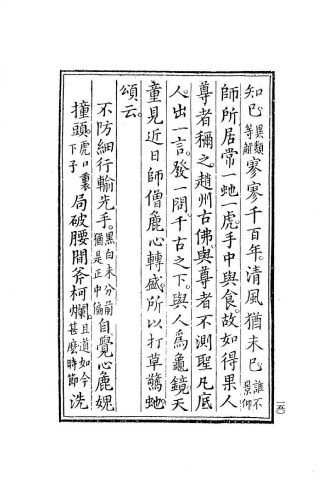 知已異類等解寥寥千百年。清風猶未已誰不景仰
師所居常一虵一虎。手中與食。故如得果人
尊者稱之。趙州古佛。與尊者不測聖凡底
人。出一言。發一問。千古之下。與人爲龜鏡。天
童見近日師僧麁心轉盛。所以打草驚虵。
頌云。
不防細行輸先手。黑白未分前猶是正中偏自覺心麁媿
撞頭。虎口裏下子局破腰間斧柯爛。且道如今甚麽時節洗